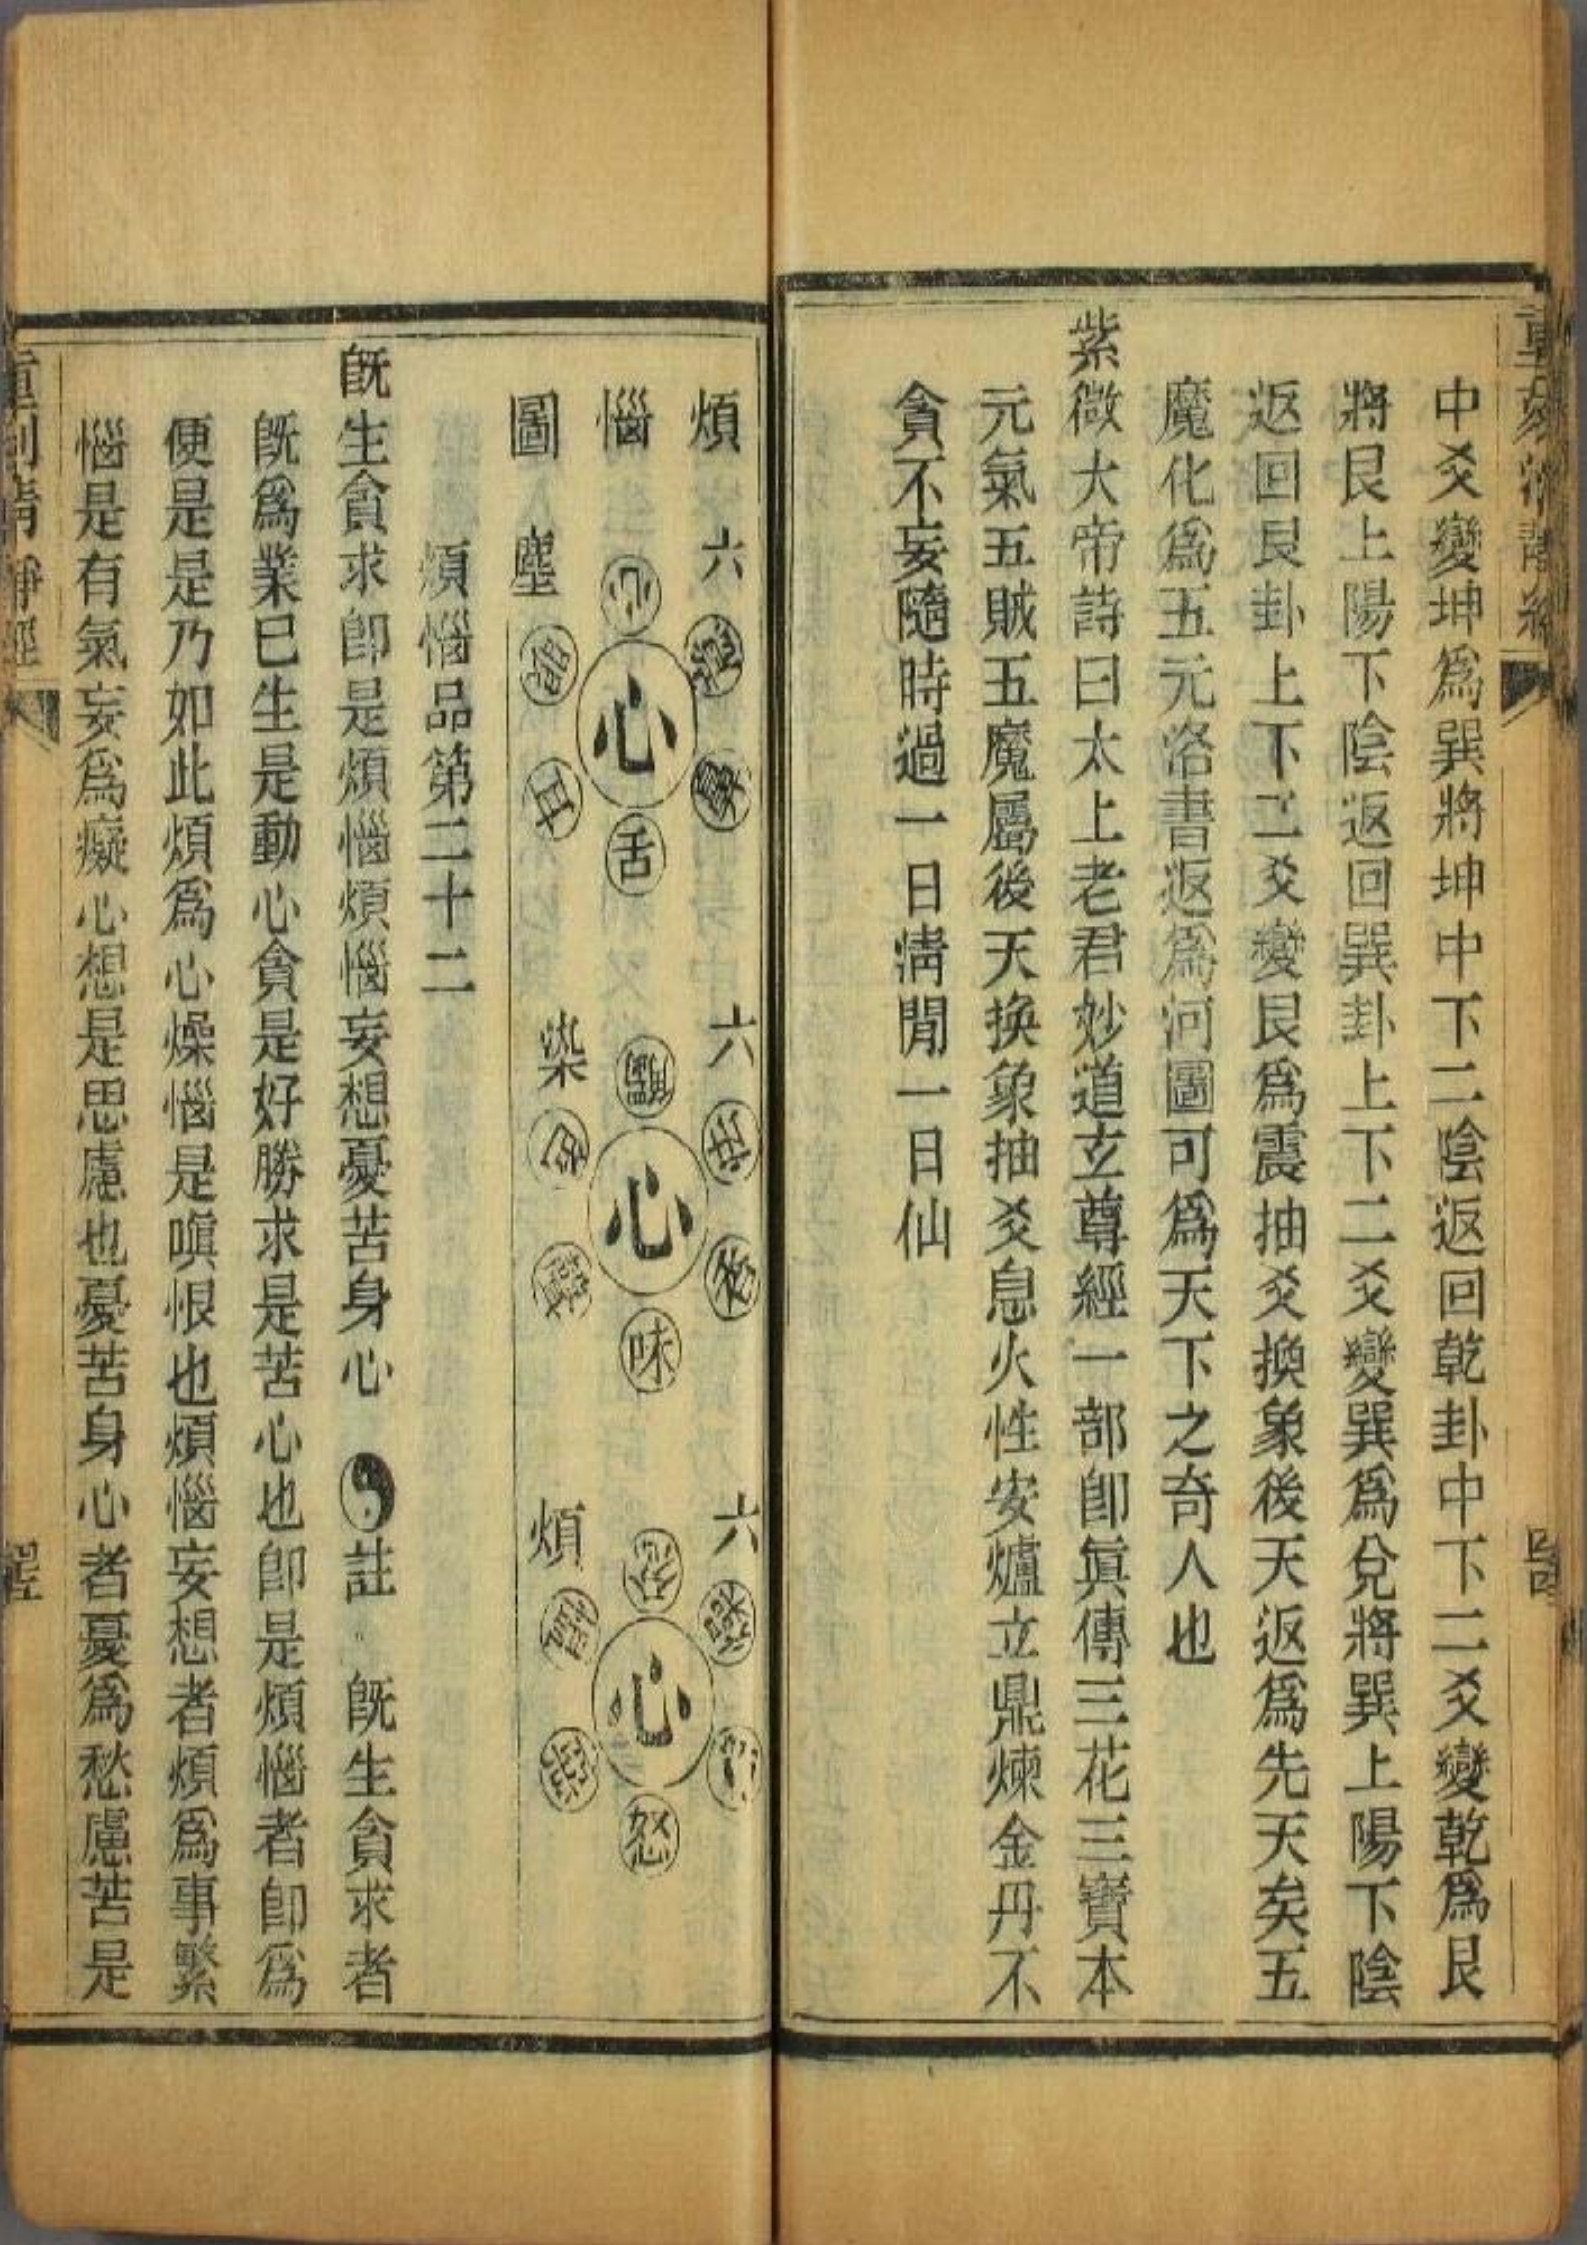 中爻變坤爲巽將坤中下二陰返回乾卦中下二爻變乾爲艮
將艮上陽下陰返回巽卦上下二爻變巽爲兌將巽上陽下陰
返回艮卦上下二爻變艮爲震抽爻換象後天返爲先天矣五
魔化爲五元洛書返爲河圖可爲天下之奇人也
紫微大帝詩曰太上老君妙道玄尊經一部卽眞傳三花三寶本
元氣五賊五魔屬後天換象抽爻息火性安爐立鼎煉金丹不
貪不妄隨時過一日清閒一日仙
煩惱圖
六塵
心
舌
六染
心
味
六煩
心
怒
煩惱品第二十二
旣生貪求卽是煩惱煩惱妄想憂苦身心 註 旣生貪求者
旣爲業已生是動心貪是好勝求是苦心也卽是煩惱者卽爲
便是是乃如此煩爲心燥惱是嗔恨也煩惱妄想者煩爲事繫
惱是有氣妄爲癡心想是思慮也憂苦身心者憂爲愁慮苦是
重刊清靜經